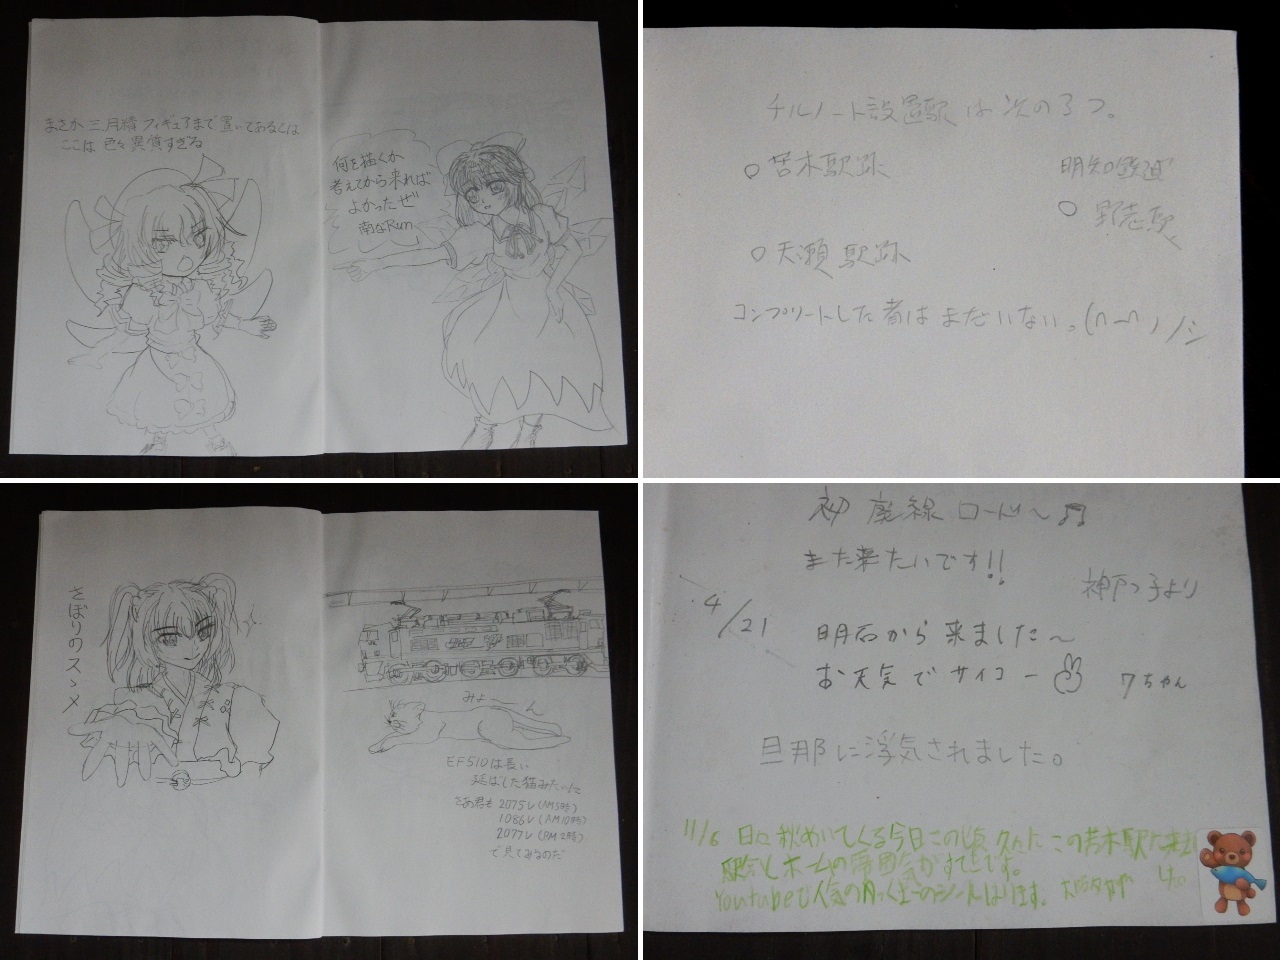 まさか三月精フィギュアまで置いてあるとは
ここは色々異質すぎる
何を描くか
考えてから来れば
よかったぜ
南なRun
チルノート設置駅は次の3つ。
○苦木駅跡
明知鉄道
○野志駅
○天瀬駅跡
コンプリートした者はまだいない。
さぼりのスゝメ
みょーん
EF510は長い
延ばした猫みたいに
さあ君も2075レ(AM5時)
1086レ(AM10時)
2077レ(PM2時)
で見てみるのだ
初廃線ロード〜♬
また来たいです!!
神戸っ子より
4/21
明石から来ました〜
お天気でサイコー✌
ワちゃん
旦那に浮気されました。
11/6 日に秋めいてくる今日この頃 久々にこの苦木駅に来
駅舎とホームの雰囲気がすてきです。
Youtubeで人気の
シールはります。